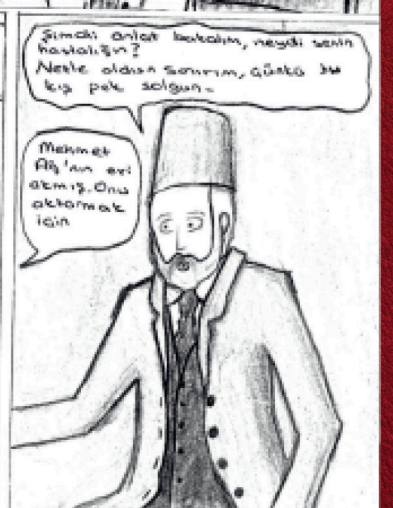 Şimdi anlat bakalım, neydi senin
hastalığın?
Nezle oldun sanırım, çünkü bu
kış pek salgun.
Mehmet
Ağ'nın evi
akmış. Onu
aktarmak
için